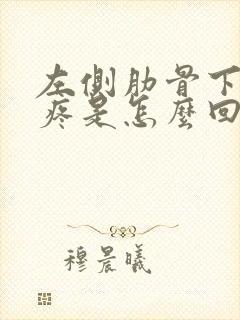 左側肋骨下
疼是怎麼回
穆晨曦